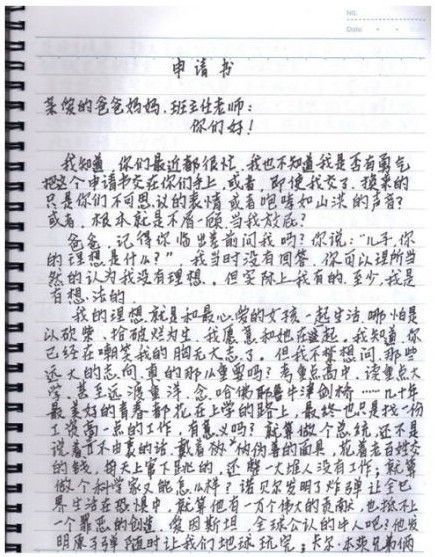 NO.
Date
申请书
亲爱的爸爸妈妈,班主任老师:
你们好!
我知道,你们最近都很忙,我也不知道我是否有勇气
把这个申请书交在你们手上,或者,即使我交了,换来的
只是你们不可思议的表情或者咆哮如山洪的声音?
或者,根本就是不屑一顾,当我放屁?
爸爸,记得你临出差前问我吗?你说:“儿子,你
的理想是什么?”,我当时没有回答,你可以理所当
然的认为我没有理想。但实际上我有的,至少,我是
有想法的。
我的理想就是和最心爱的女孩一起生活,哪怕是
以砍柴、拾破烂为生,我愿意和她在一起。我知道,你
已经在嘲笑我的胸无大志了。但我不禁想问,那些
远大的志向,真的那么重要吗?考重点高中,读重点大
学,甚至远渡重洋,念哈佛耶鲁牛津剑桥……几十年
最美好的青春都花在上学的路上,最终也只是找一份
工资高一点的工作,有意义吗?就算做个总统,还不是
说着言不由衷的话,戴着伪善的面具,花着老百姓交
的钱,每天上窜下跳的,还整一大堆人没有工作;就算
做个科学家又能怎么样?诺贝尔发明了炸弹让全世
界生活在恐惧中,就算他有一万个伟大的贡献,也抵不上
一个罪恶的创造。爱因斯坦,全球公认的牛人吧?他发
明原子弹随时让我们地球玩完;卡尔·本茨兄弟俩